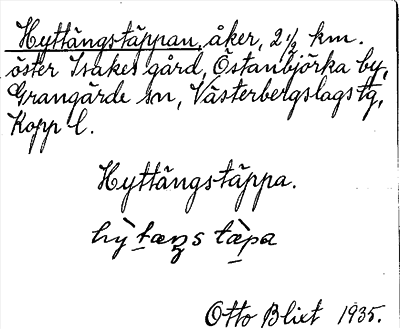 Hyttängstäppan, åker, 2 ½ km.
öster Isakes gård, Östanbjörka by,
Grangärde sn, Västerbergslags tg,
Kopp l.
Hyttängstäppa.
hỳtæŋs tæ̀pa
Otto Blixt 1935.